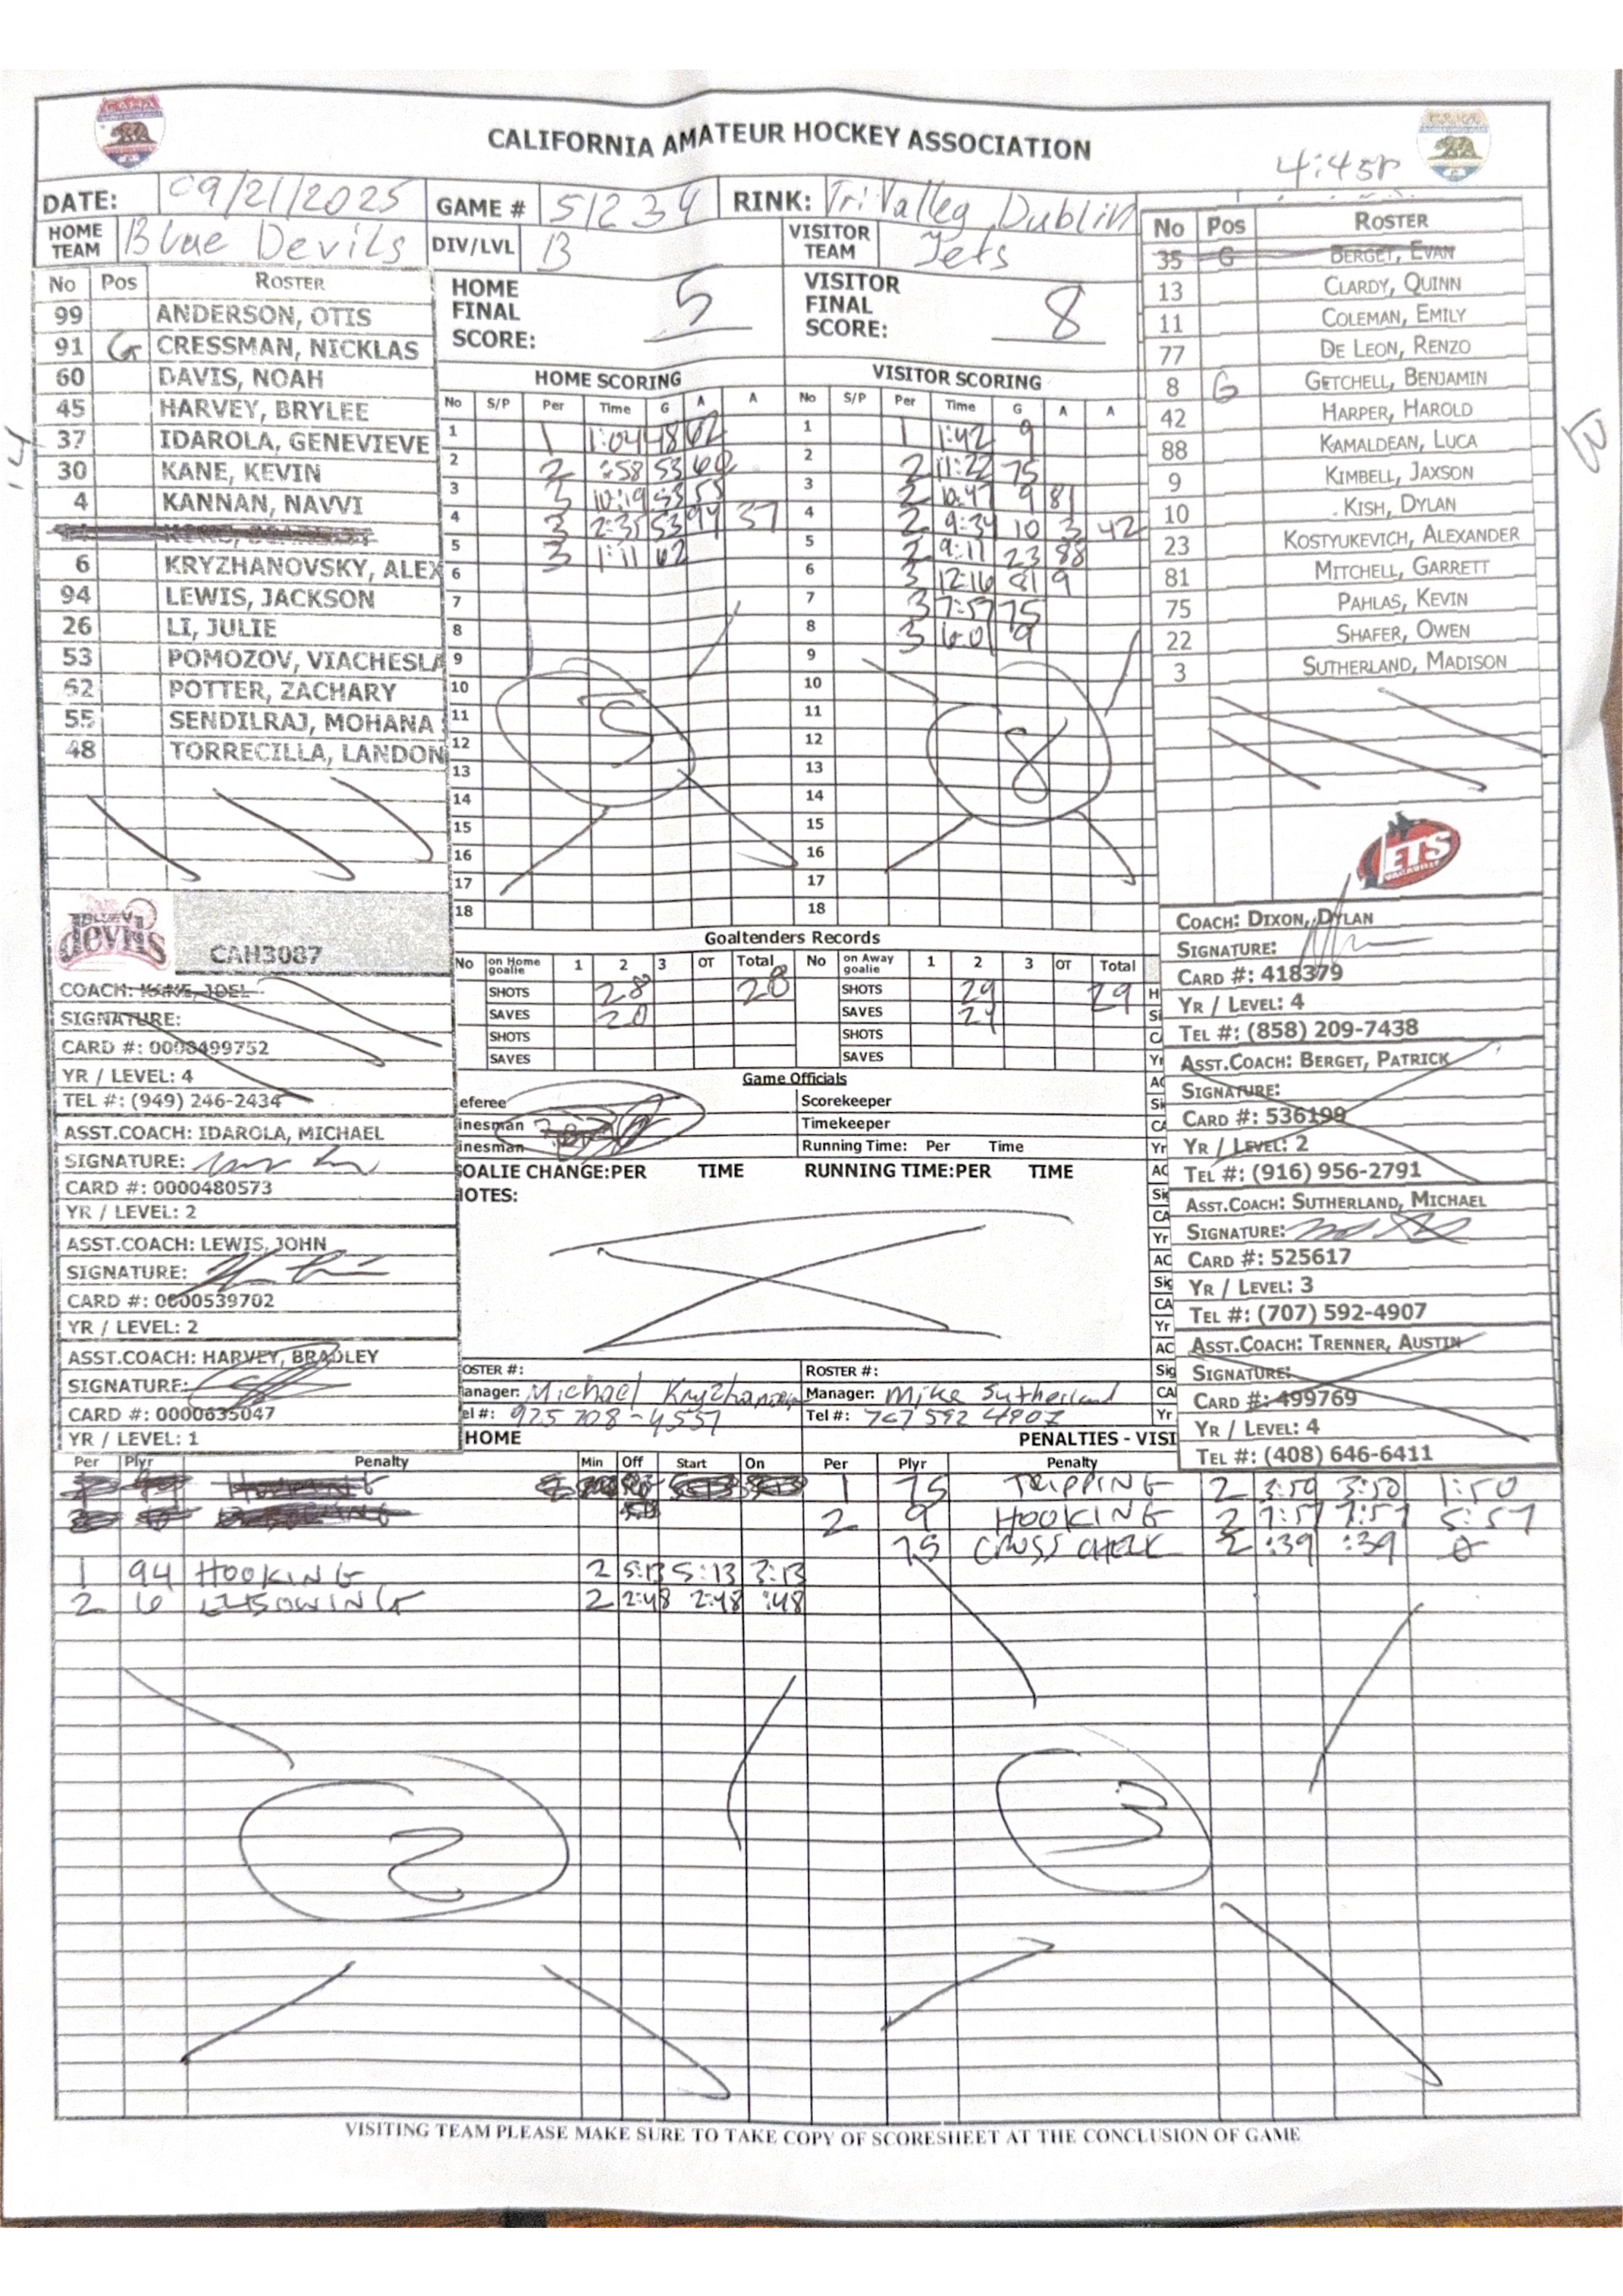 CALIFORNIA AMATEUR HOCKEY ASSOCIATION
4:45P
DATE: 09/21/2025 GAME # 51234 RINK: Tri Valley Dublin
HOME TEAM Blue Devils DIV/LVL B VISITOR TEAM Jets
HOME FINAL SCORE: 5 VISITOR FINAL SCORE: 8
No Pos ROSTER
99 ANDERSON, OTIS
91 G CRESSMAN, NICKLAS
60 DAVIS, NOAH
45 HARVEY, BRYLEE
37 IDAROLA, GENEVIEVE
30 KANE, KEVIN
4 KANNAN, NAVVI
6 KRYZHANOVSKY, ALEX
94 LEWIS, JACKSON
26 LI, JULIE
53 POMOZOV, VIACHESLA
62 POTTER, ZACHARY
55 SENDILRAJ, MOHANA
48 TORRECILLA, LANDON
14
HOME SCORING
No S/P Per Time G A A
1 1 1:04 48 62
2 2 :58 53 60
3 3 10:19 53 55
4 3 2:35 53 94 37
5 3 1:11 62
6
7
8
9
10
11
12
13
14
15
16
17
18
5
VISITOR SCORING
No S/P Per Time G A A
1 1 1:42 9
2 2 11:22 75
3 2 10:47 9 81
4 2 9:34 10 3 42
5 2 9:11 23 88
6 3 12:16 81 9
7 3 7:57 75
8 3 6:01 9
9
10
11
12
13
14
15
16
17
18
8
No Pos ROSTER
35 G BERGET, EVAN
13 CLARDY, QUINN
11 COLEMAN, EMILY
77 DE LEON, RENZO
8 G GETCHELL, BENJAMIN
42 HARPER, HAROLD
88 KAMALDEAN, LUCA
9 KIMBELL, JAXSON
10 KISH, DYLAN
23 KOSTYUKEVICH, ALEXANDER
81 MITCHELL, GARRETT
75 PAHLAS, KEVIN
22 SHAFER, OWEN
3 SUTHERLAND, MADISON
13
JETS
VACAVILLE
BLUE devils
CAH3087
COACH: KANE, JOEL
SIGNATURE:
CARD #: 0008499752
YR / LEVEL: 4
TEL #: (949) 246-2434
ASST.COACH: IDAROLA, MICHAEL
SIGNATURE:
CARD #: 0000480573
YR / LEVEL: 2
ASST.COACH: LEWIS, JOHN
SIGNATURE:
CARD #: 0000539702
YR / LEVEL: 2
ASST.COACH: HARVEY, BRADLEY
SIGNATURE:
CARD #: 0000635047
YR / LEVEL: 1
Goaltenders Records
No on Home goalie 1 2 3 OT Total No on Away goalie 1 2 3 OT Total
SHOTS 28 28 SHOTS 29 29
SAVES 20 SAVES 24
SHOTS SHOTS
SAVES SAVES
Game Officials
eferee Scorekeeper
inesman Timekeeper
inesman Running Time: Per Time
OALIE CHANGE:PER TIME RUNNING TIME:PER TIME
NOTES:
OSTER #: ROSTER #:
anager: Michael Kryzhanovsky Manager: Mike Sutherland
el #: 925 708-4557 Tel #: 707 592 4907
COACH: DIXON, DYLAN
SIGNATURE:
CARD #: 418379
YR / LEVEL: 4
TEL #: (858) 209-7438
ASST.COACH: BERGET, PATRICK
SIGNATURE:
CARD #: 536199
YR / LEVEL: 2
TEL #: (916) 956-2791
ASST.COACH: SUTHERLAND, MICHAEL
SIGNATURE:
CARD #: 525617
YR / LEVEL: 3
TEL #: (707) 592-4907
ASST.COACH: TRENNER, AUSTIN
SIGNATURE:
CARD #: 499769
YR / LEVEL: 4
TEL #: (408) 646-6411
HOME PENALTIES - VISI
Per Plyr Penalty Min Off Start On Per Plyr Penalty
1 75 TRIPPING 2 3:50 3:50 1:50
2 9 HOOKING 2 7:57 7:57 5:57
75 CROSS CHECK 2 :39 :39 0
1 94 HOOKING 2 5:13 5:13 3:13
2 6 ELBOWING 2 2:48 2:48 :48
2
3
VISITING TEAM PLEASE MAKE SURE TO TAKE COPY OF SCORESHEET AT THE CONCLUSION OF GAME